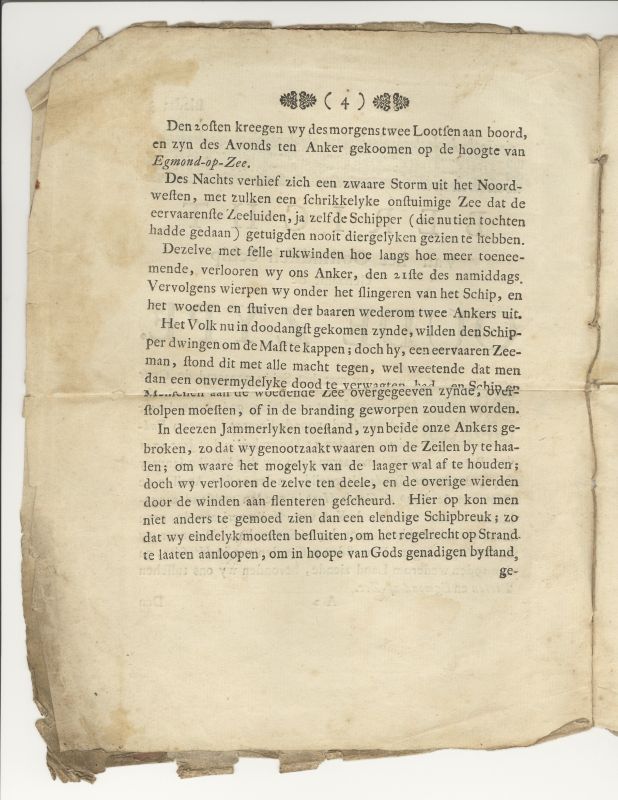 ( 4 )
Den 20sten kreegen wy des morgens twee Lootsen aan boord,
en zyn des Avonds ten Anker gekoomen op de hoogte van
Egmond-op-Zee.
Des Nachts verhief zich een zwaare Storm uit het Noord-
westen, met zulken een schrikkelyke onstuimige Zee dat de
eervaarenste Zeeluiden, ja zelf de Schipper (die nu tien tochten
hadde gedaan) getuigden nooit diergelyken gezien te hebben.
Dezelve met felle rukwinden hoe langs hoe meer toenee-
mende, verlooren wy ons Anker, den 21ste des namiddags.
Vervolgens wierpen wy onder het slingeren van het Schip, en
het woeden en stuiven der baaren wederom twee Ankers uit.
Het Volk nu in doodangst gekomen zynde, wilden den Schip-
per dwingen om de Mast te kappen; doch hy, een eervaaren Zee-
man, stond dit met alle macht tegen, wel weetende dat men
dan een onvermydelyke dood te verwagten had, en Schip en
Menschen aan de woedende Zee overgegeeven zynde, over-
stolpen moesten, of in de branding geworpen zouden worden.
In deezen Jammerlyken toestand, zyn beide onze Ankers ge-
broken, zo dat wy genootzaakt waaren om de Zeilen by te haa-
len; om waare het mogelyk van de laager wal af te houden;
doch wy verlooren de zelve ten deele, en de overige wierden
door de winden aan flenteren gescheurd. Hier op kon men
niet anders te gemoed zien dan een elendige Schipbreuk; zo
dat wy eindelyk moesten besluiten, om het regelrecht op Strand
te laaten aanloopen, om in hoope van Gods genadigen bystand,
ge-